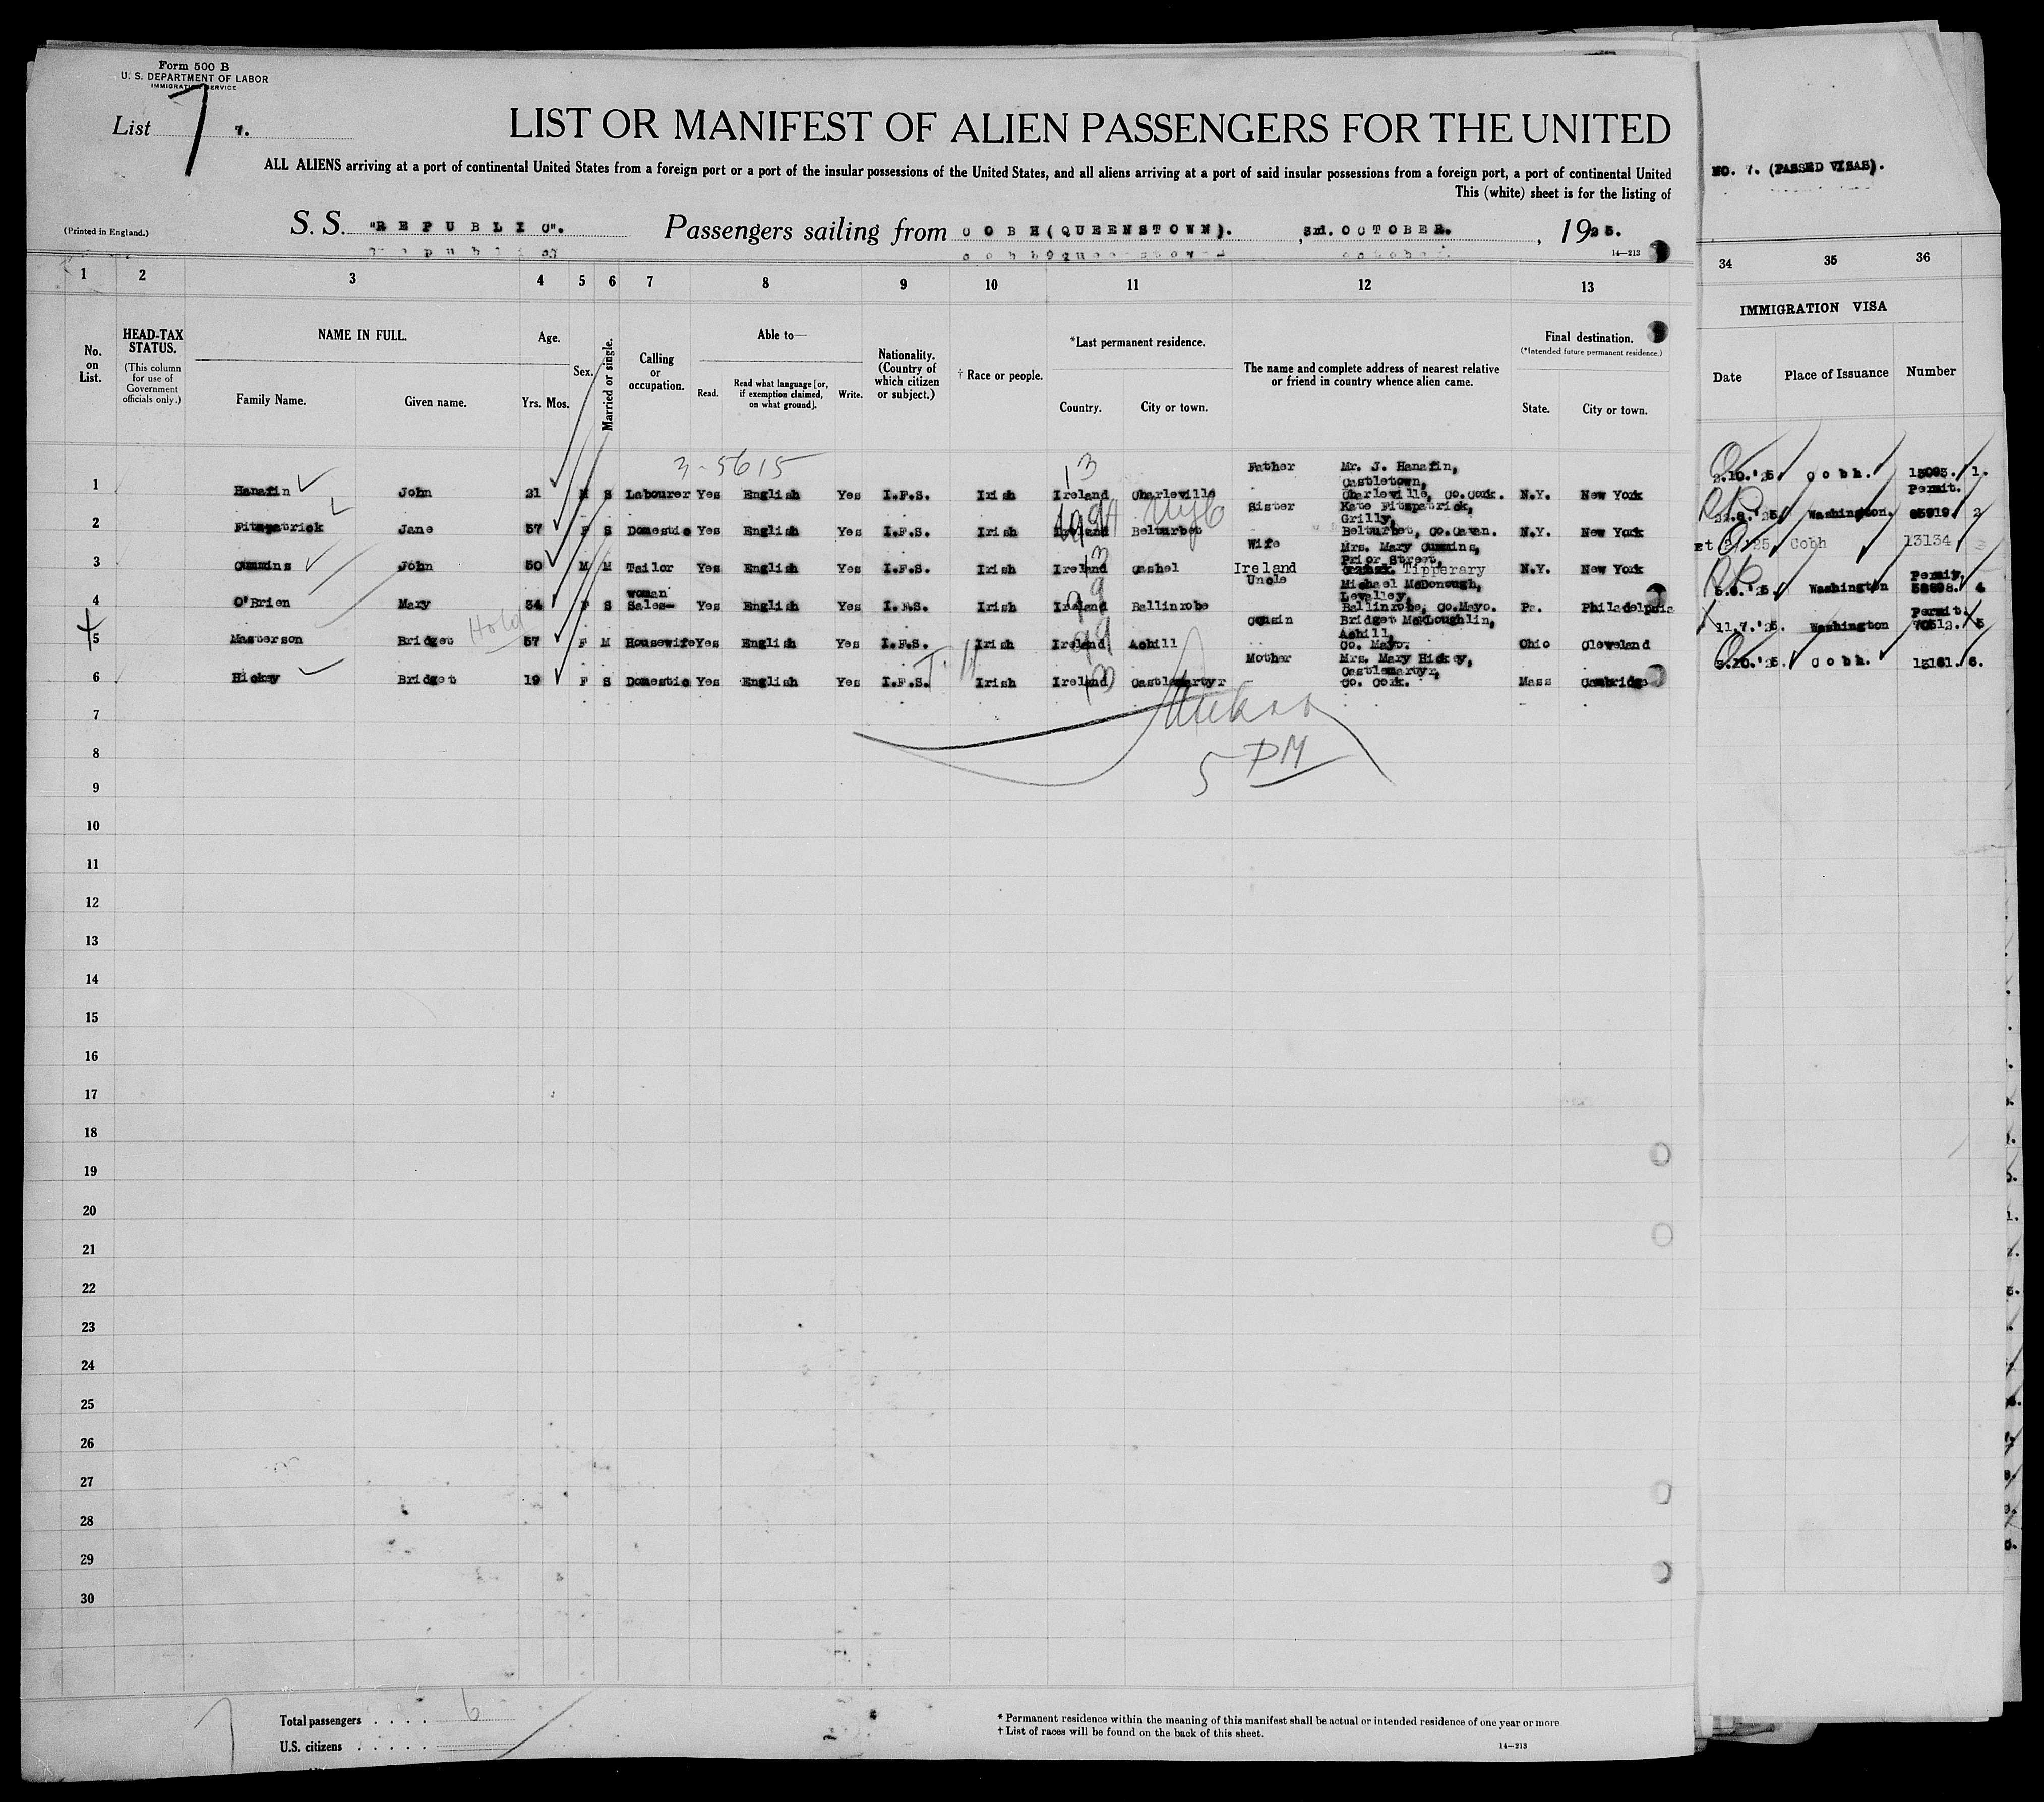 Form 500 B
U. S. DEPARTMENT OF LABOR
IMMIGRATION SERVICE
List 7 7.
LIST OR MANIFEST OF ALIEN PASSENGERS FOR THE UNITED
ALL ALIENS arriving at a port of continental United States from a foreign port or a port of the insular possessions of the United States, and all aliens arriving at a port of said insular possessions from a foreign port, a port of continental United
This (white) sheet is for the listing of
NO. 7. (PASSED VISAS).
(Printed in England.)
S. S. "REPUBLIC". Passengers sailing from COBH(QUEENSTOWN). , 3rd. OCTOBER. , 1925.
14—213
1 2 3 4 5 6 7 8 9 10 11 12 13 34 35 36
No. on List.
HEAD-TAX STATUS.
(This column for use of Government officials only.)
NAME IN FULL.
Family Name. Given name.
Age.
Yrs. Mos.
Sex.
Married or single.
Calling or occupation.
Able to—
Read. Read what language [or, if exemption claimed, on what ground]. Write.
Nationality. (Country of which citizen or subject.)
† Race or people.
*Last permanent residence.
Country. City or town.
The name and complete address of nearest relative or friend in country whence alien came.
Final destination.
(*Intended future permanent residence.)
State. City or town.
IMMIGRATION VISA
Date Place of Issuance Number
3-5615
13
1 Hanafin John 21 M S Labourer Yes English Yes I.F.S. Irish Ireland Charleville Father Mr. J. Hanafin, Castletown, Charleville, Co. Cork. N.Y. New York 2.10.'25. Cobh. 13093. 1.
2 Fitzpatrick Jane 57 F S Domestic Yes English Yes I.F.S. Irish Ireland Belturbet Sister Kate Fitzpatrick, Grilly, Belturbet, Co. Cavan. N.Y. New York Washington. Permit. 65919. 2
3 Cummins John 50 M M Tailor Yes English Yes I.F.S. Irish Ireland Cashel Wife Mrs. Mary Cummins, Prior Street, Ireland Tipperary N.Y. New York Cobh 13134 3
4 O'Brien Mary 34 F S Saleswoman Yes English Yes I.F.S. Irish Ireland Ballinrobe Uncle Michael McDonough, Levalley, Ballinrobe, Co. Mayo. Pa. Philadelphia Washington Permit. 4
5 Masterson Bridget Hold 57 F M Housewife Yes English Yes I.F.S. Irish Ireland Achill Cousin Bridget McLoughlin, Achill, Co. Mayo. Ohio Cleveland 11.7.'25. Washington Permit. 70512. 5
6 Hickey Bridget 19 F S Domestic Yes English Yes I.F.S. Irish Ireland Castlemartyr Mother Mrs. Mary Hickey, Castlemartyr, Co. Cork. Mass Cambridge 3.10.'25. Cobh. 13161. 6.
7
8
5 PM
9
10
11
12
13
14
15
16
17
18
19
20
21
22
23
24
25
26
27
28
29
30
Total passengers . . . . 6
U.S. citizens . . . . .
* Permanent residence within the meaning of this manifest shall be actual or intended residence of one year or more
† List of races will be found on the back of this sheet.
14—213